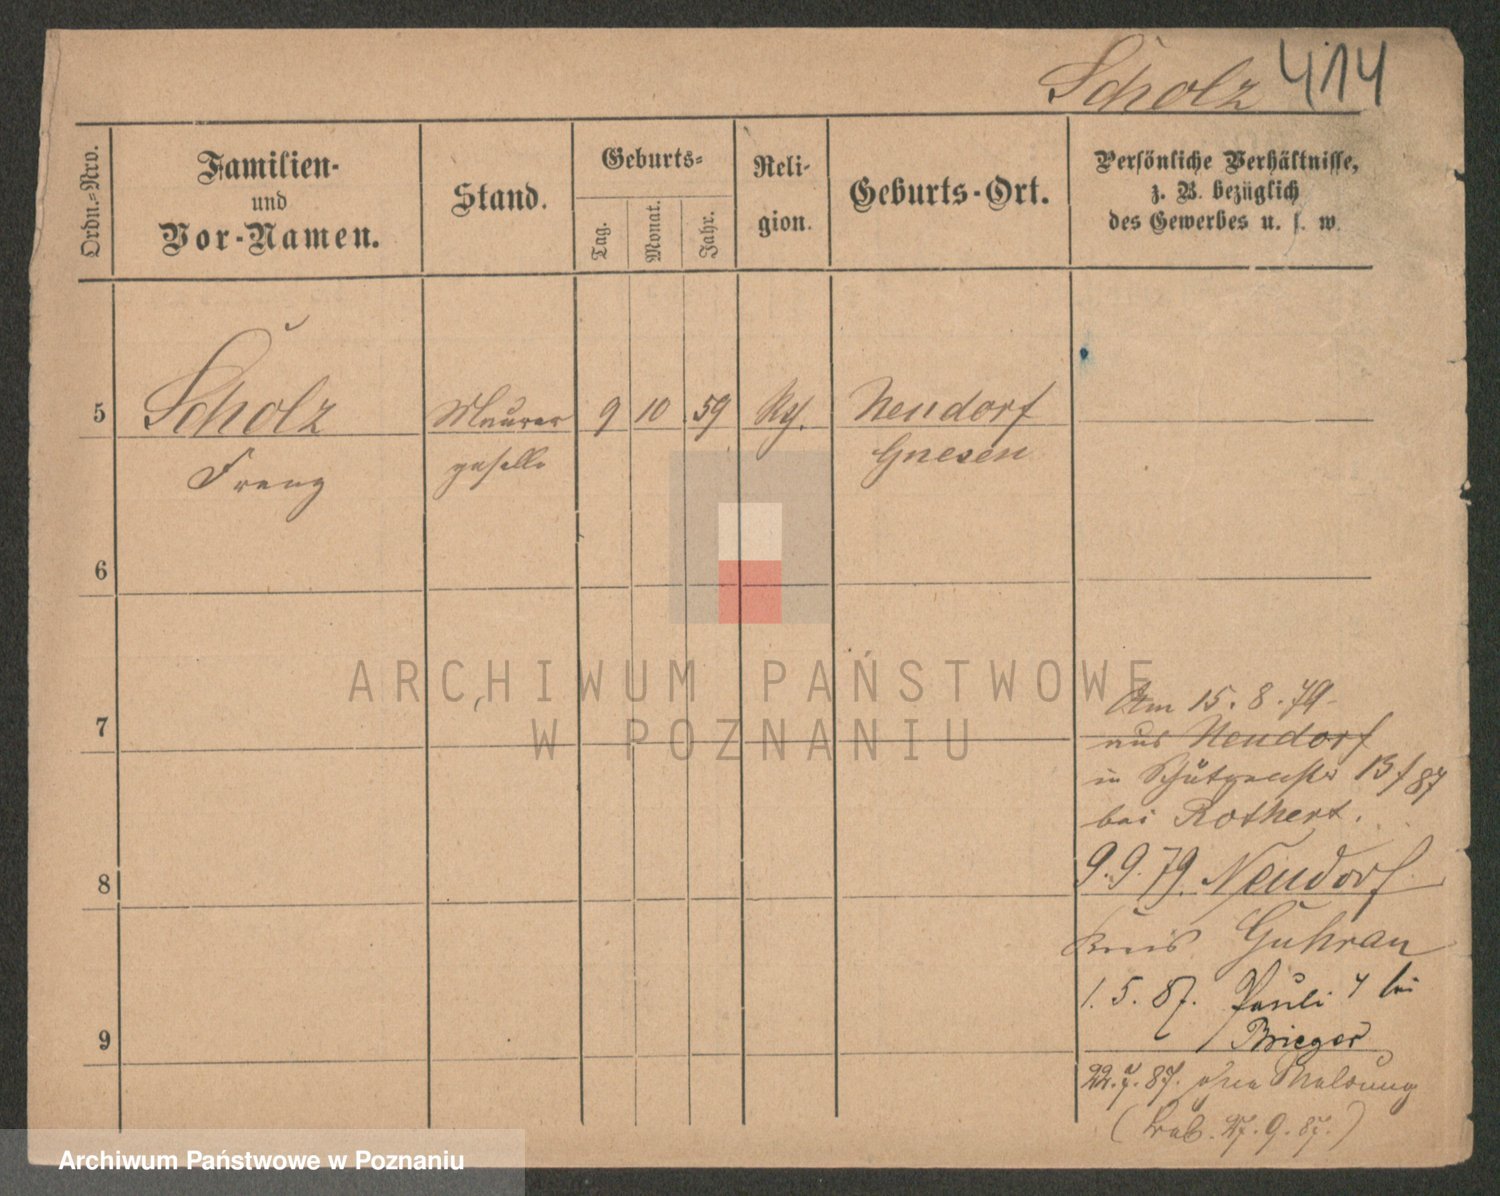 Scholz 414
Ordn.-Nro.
Familien-
und
Vor-Namen.
Stand.
Geburts-
Tag.
Monat.
Jahr.
Reli-
gion.
Geburts-Ort.
Persönliche Verhältnisse,
z. B. bezüglich
des Gewerbes u. s. w.
5 Scholz Maurer 9 10 59 Neudorf
Franz geselle Gnesen
6
7
Am 15.8.79
aus Neudorf
in 13/87
bei Rothert.
8
9.9.79. Neudorf
Kreis Guhrau
1.5.87. Pauli 4 bei
9
Brieger
22.7.87. ohne Meldung
27.9.87.)
ARCHIWUM PAŃSTWOWE
W POZNANIU
Archiwum Państwowe w Poznaniu